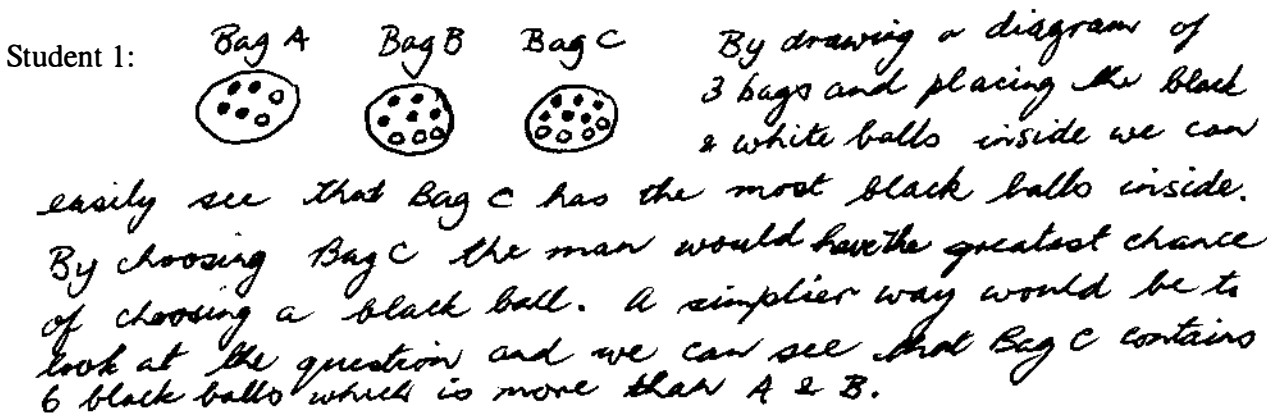 Student 1:
Bag A Bag B Bag C
By drawing a diagram of
3 bags and placing the black
& white balls inside we can
easily see that Bag C has the most black balls inside.
By choosing Bag C the man would have the greatest chance
of choosing a black ball. A simplier way would be to
look at the question and we can see that Bag C contains
6 black balls which is more than A & B.